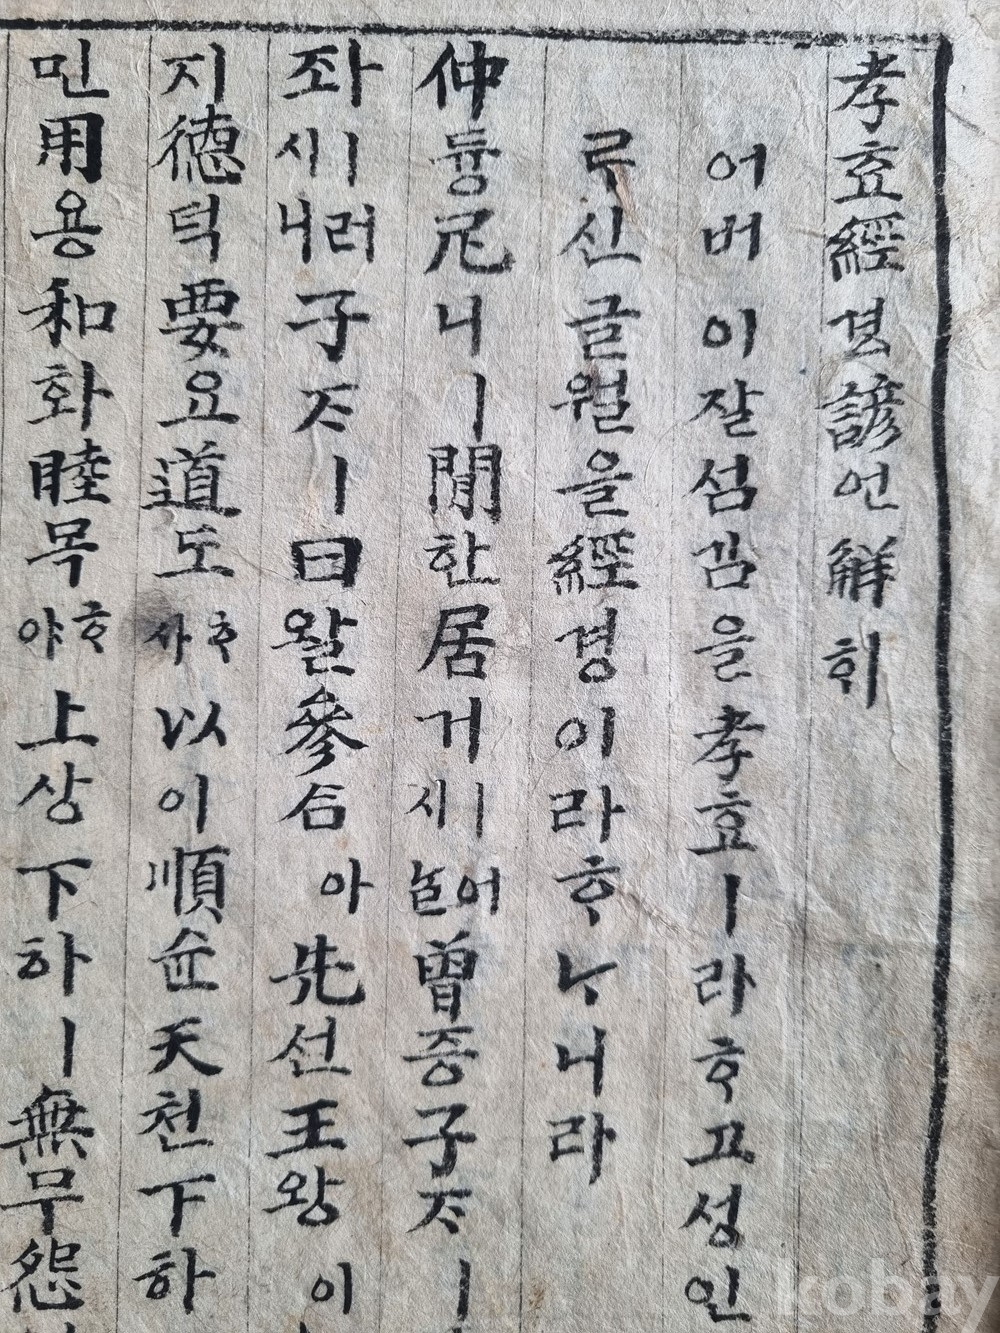 孝효經경諺언觧ᄒᆡ
어버이잘섬김을孝효ㅣ라ᄒᆞ고성인
루신글월을經경이라ᄒᆞᄂᆞ니라
仲듕尼니ㅣ閒한居거ㅣ시어늘曾증子ᄌᆞㅣ
좌ㅣ시러니子ᄌᆞㅣ曰왈參ᄉᆞᆷ아先선王왕이
지德덕要요道도ᄒᆞ사以이順순天천下하
민用용和화睦목ᄒᆞ야上상下하ㅣ無무怨
kobay